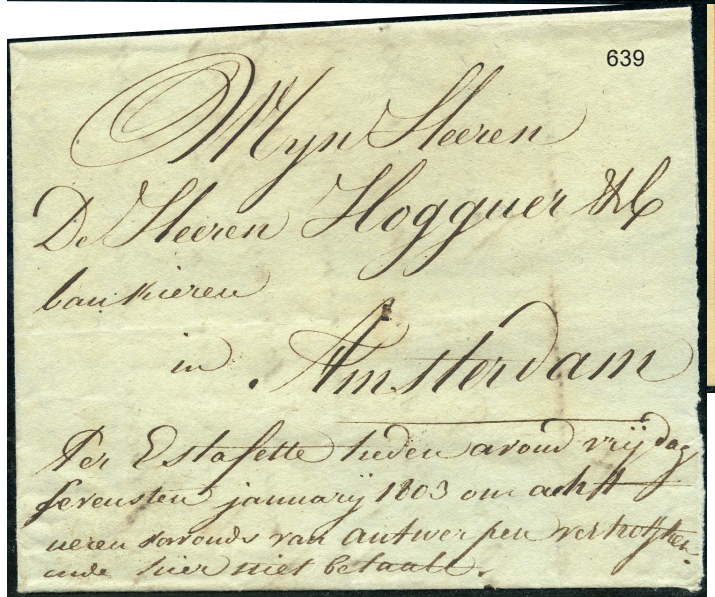 639
Mijn Heeren
De Heeren Hogguer & C
bankieren
in Amsterdam
Per Estafette heden avond vrijdag
sevensten januarij 1803 om acht
ueren savonds van antwerpen vertrokken
ende hier niet betaalt.